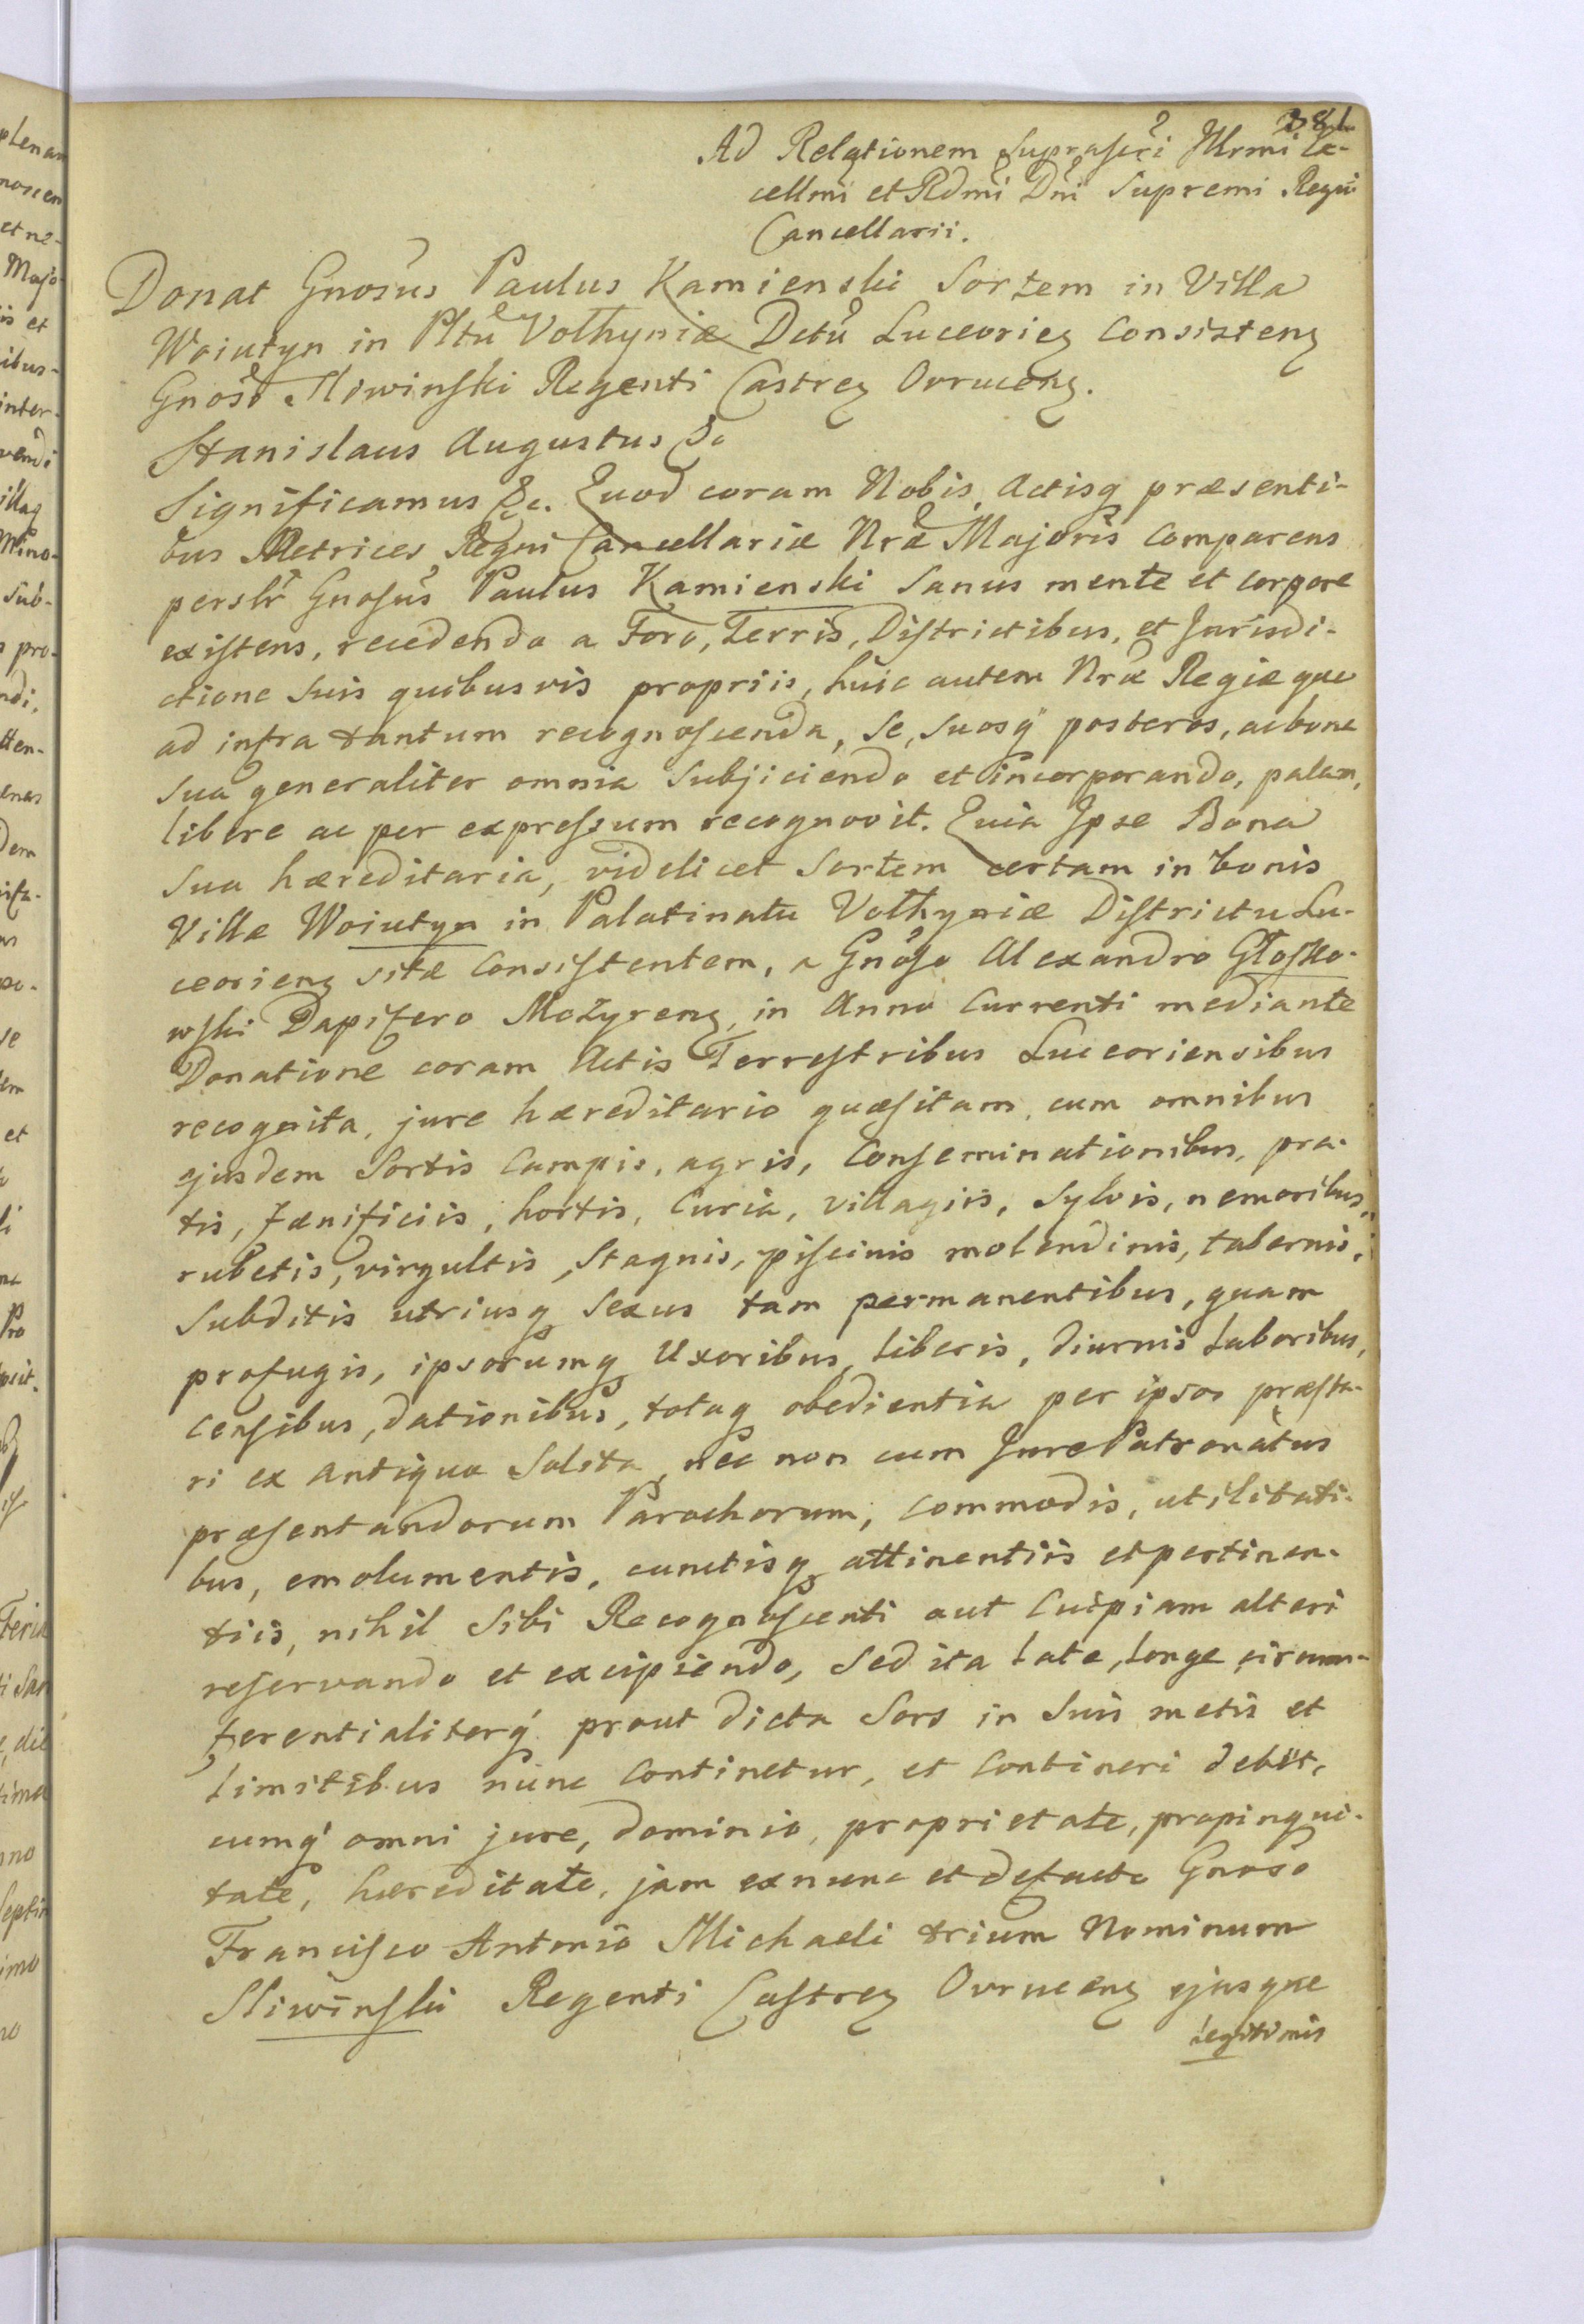 381
Ad Relationem suprascri Illrmi Ex-
cellmi et Rdmi Dni Supremi Regni
Cancellarii.
Donat Gnosus Paulus Kamienski Sortem in Villa
Woiutyn in Pltu Volhyniæ Dctu Luceorieñ Consisteñ
Gnoso Sliwinski Regenti Castreñ Ovruceñ.
Stanislaus Augustus &c
Significamus &c. Quod coram Nobis, Actisq præsenti-
bus Metrices Regni Cancellariæ Nræ Majoris Comparens
perslr Gnosus Paulus Kamienski Sanus mente et corpore
existens, recedendo a Foro, Terris, Districtibus, et Jurisdi-
ctione Suis quibusvis propriis, huic autem Nræ Regiæ que
ad infra tantum recognoscenda, Se, Suosq posteros, ac bona
Sua generaliter omnia Subjiciendo et incorporando, palam,
libere ac per expressum recognovit. Quia Ipse Bona
Sua hæreditaria, videlicet Sortem certam in bonis
Villæ Woiutyn in Palatinatu Volhyniæ Districtu Lu-
ceorieñ sitæ Consistentem, a Gnoso Alexandro Głosko-
wski Dapifero Mozyreñ, in Anno Currenti mediante
Donatione coram Actis Terrestribus Luceoriensibus
recognita, jure hæreditario quæsitam, cum omnibus
ejusdem Sortis Campis, agris, Conseminationibus, pra-
tis, fænificiis, hortis, Curia, villagiis, Sylvis, nemoribus,
rubetis, virgultis, Stagnis, piscinis molendinis, tabernis,
Subditis utriusq Sexus tam permanentibus, quam
profugis, ipsorumq Uxoribus, liberis, diurnis laboribus,
censibus, dationibus, totaq obedientia per ipsos præsta-
ri ex antiquo Solita, nec non cum Jure Patronatus
præsentandorum Parochorum, commodis, utilitati-
bus, emolumentis, cunctisq attinentiis et pertinen-
tiis, nihil Sibi Recognoscenti aut Cuipiam alteri
reservando et excipiendo, Sed ita late, longe circum-
ferentialiterq prout dicta Sors in Suis metis et
limitibus nunc Continetur, et Contineri debet,
cumq omni jure, dominio, proprietate, propinqui-
tate, hæreditate, jam exnunc et defacto Gnoso
Francisco Antonio Michaeli trium Nominum
Sliwinski Regenti Castreñ Ovruceñ ejusque
legitimis